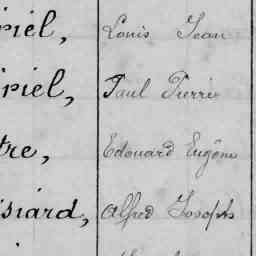 riel, Louis Jean
riel, Paul Pierre
tre, Edouard Eugène
siard, Alfred Joseph